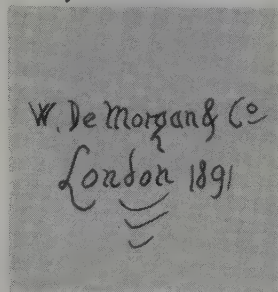 W. De Morgan & Co
London 1891